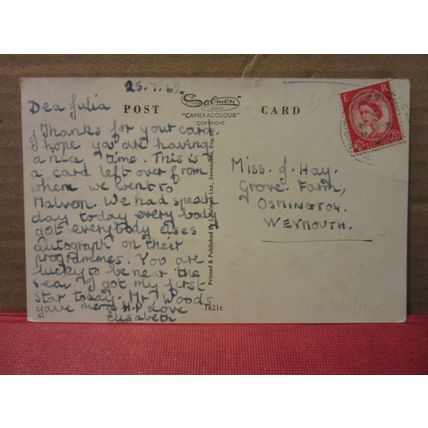 25.7.62
Dea Julia
Thanks for your card.
I hope you are having
a nice time. This is
a card left over from
when we went to
Malvon. We had speach
day today every body
got everybody elses
autograph on their
programmes. You are
lucky to be near the
sea. I got my first
star today. Mr Woods
gave me a H.P. Love
Elisabeth
POST CARD
Salmon
SERIES
"CAMERACOLOUR"
COPYRIGHT
Printed & Published by J. Salmon Ltd., Sevenoaks, Eng.
1621c
E R
Miss. J. Hay.
Grove Farm,
Osmington.
WEYMOUTH.